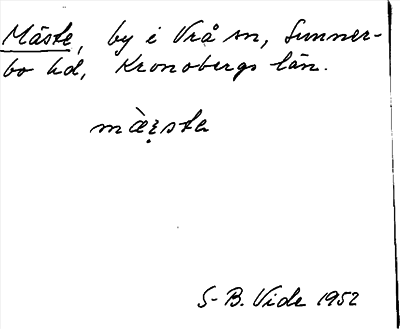 Mäste, by i Vrå sn, Sunner-
bo hd, Kronobergs län.
mæ̀ʂste
S-B. Vide 1952